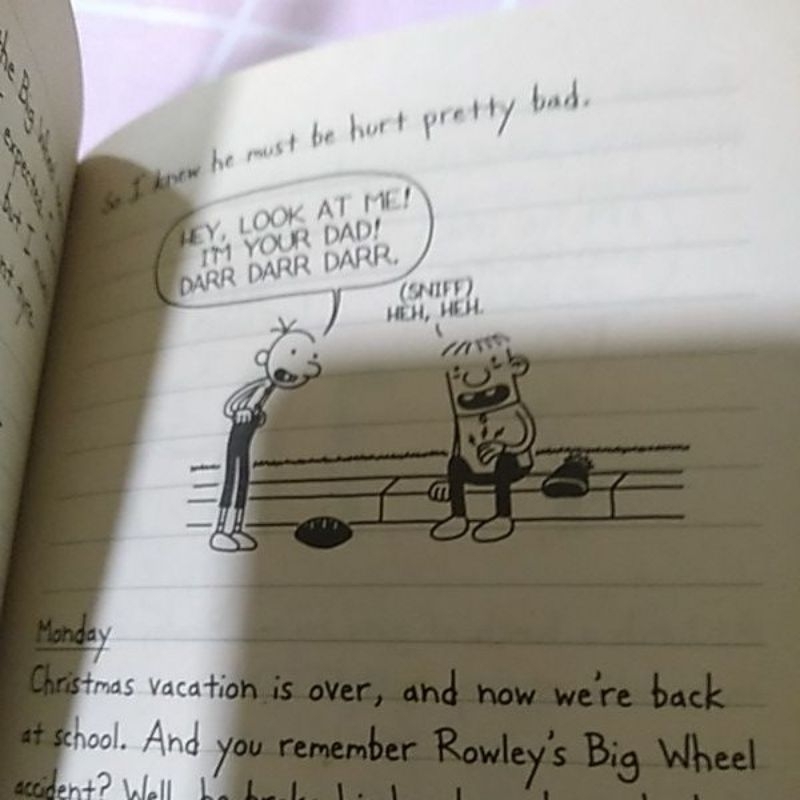 the Big
expected
but I
So I knew he must be hurt pretty bad.
HEY, LOOK AT ME!
I'M YOUR DAD!
DARR DARR DARR.
(SNIFF)
HEH, HEH.
Monday
Christmas vacation is over, and now we're back
at school. And you remember Rowley's Big Wheel
accident? Well, he